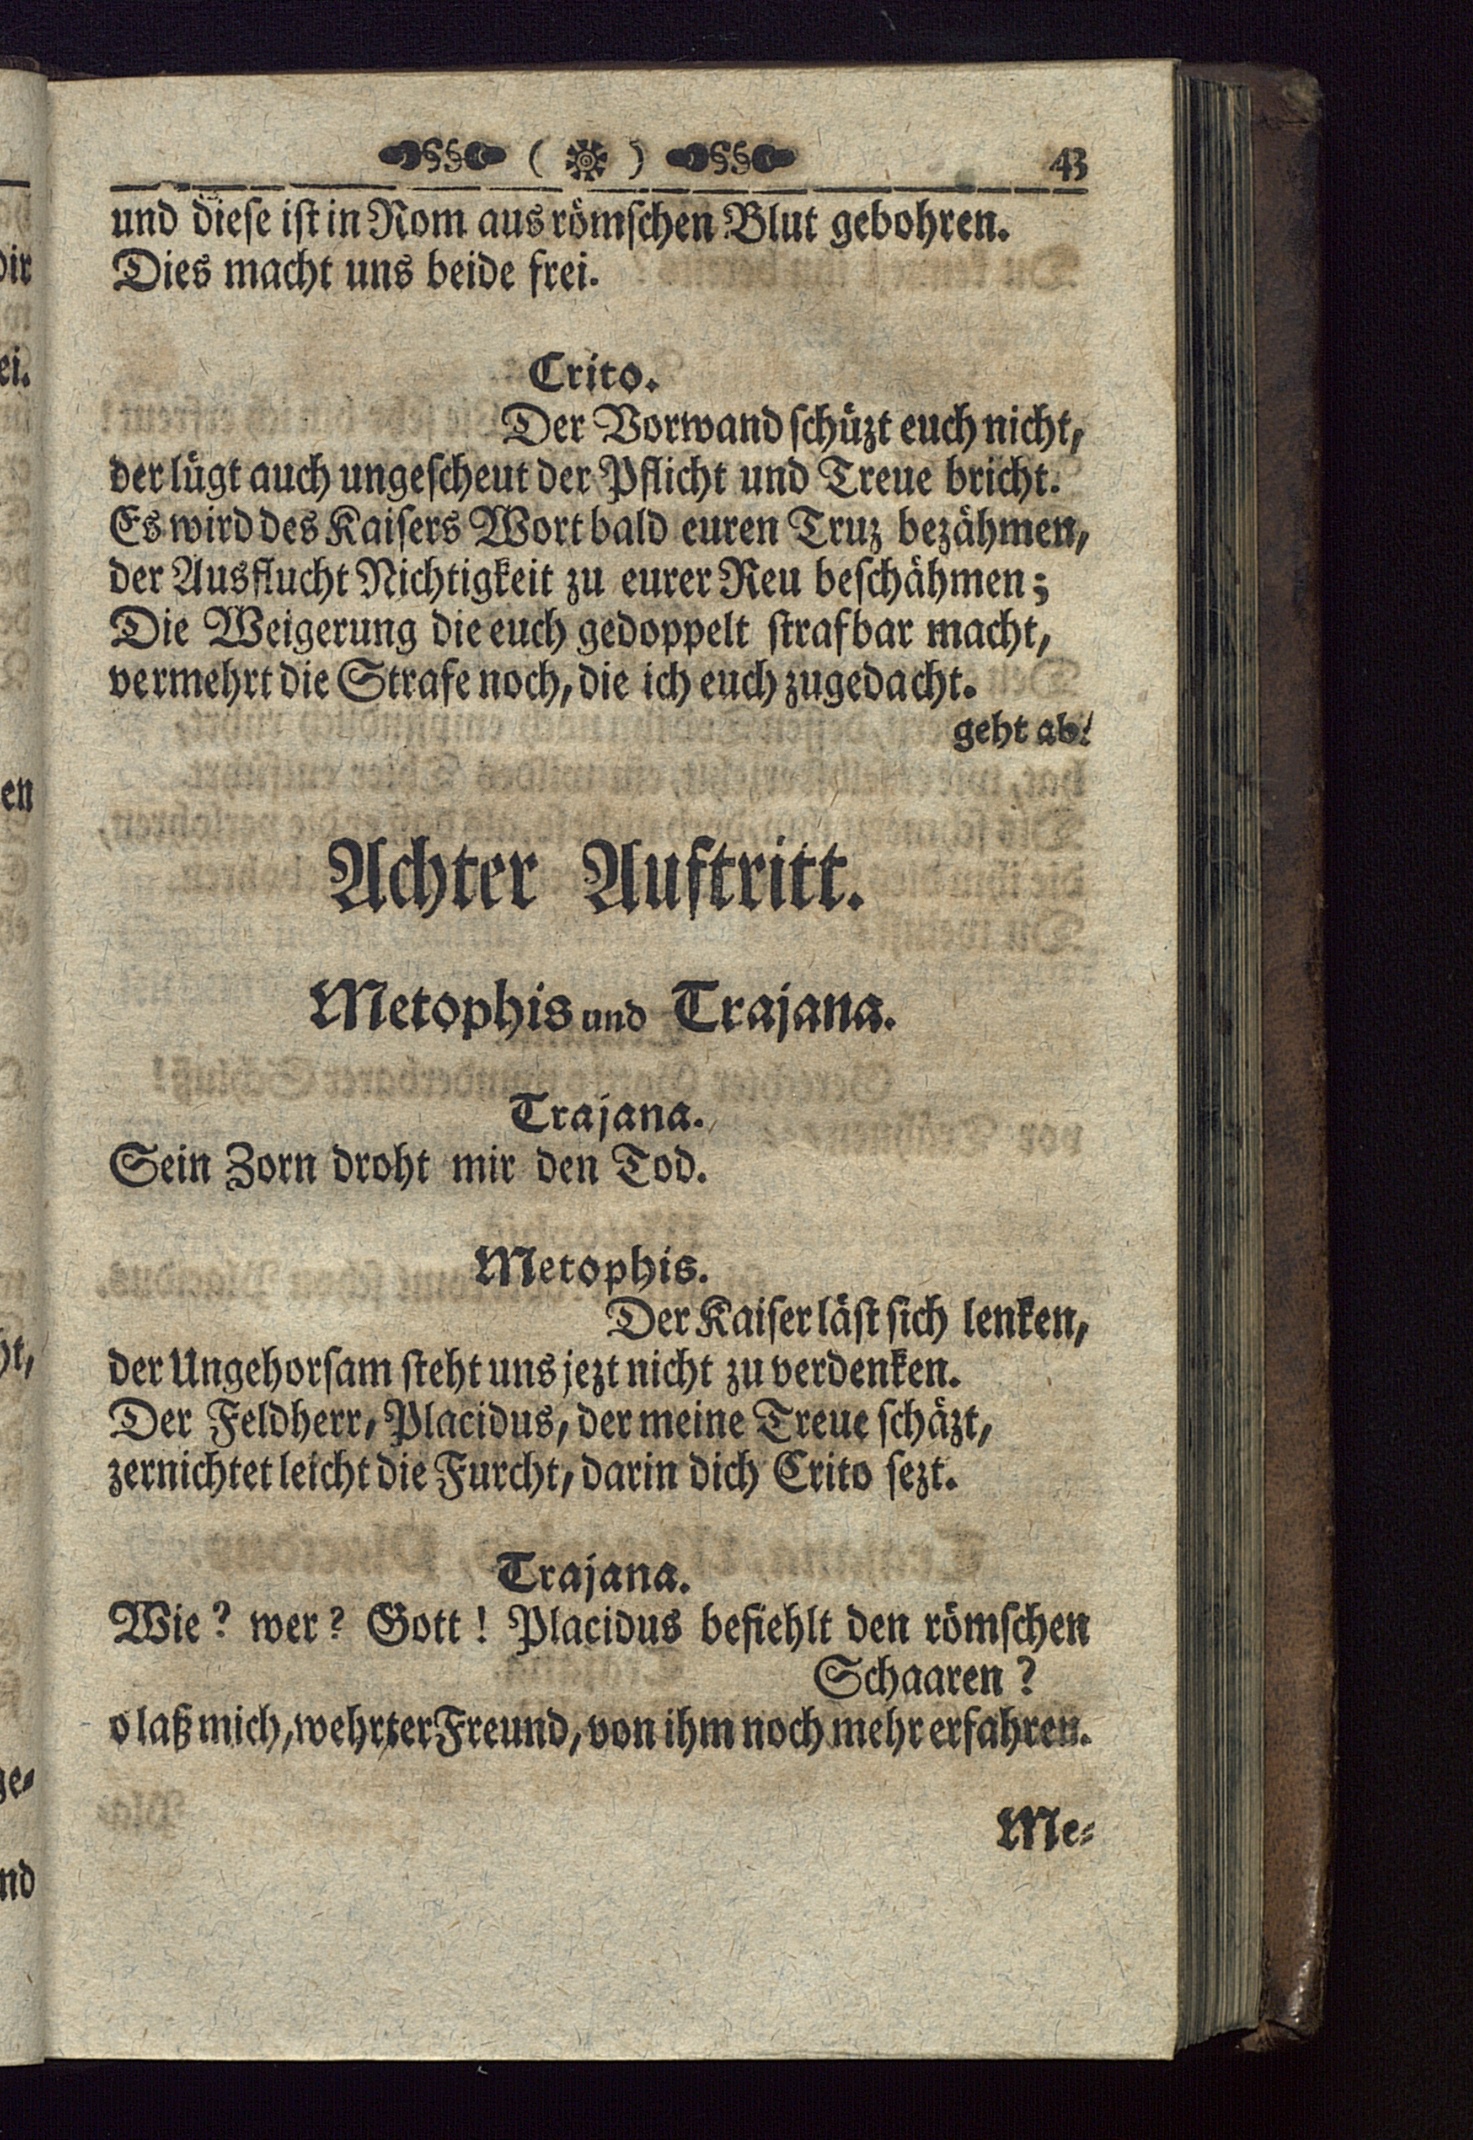 43
und diese ist in Rom aus römschen Blut gebohren.
Dies macht uns beide frei.
Crito.
Der Vorwand schüzt euch nicht,
der lügt auch ungescheut der Pflicht und Treue bricht.
Es wird des Kaisers Wort bald euren Truz bezähmen,
der Ausflucht Nichtigkeit zu eurer Reu beschähmen;
Die Weigerung die euch gedoppelt strafbar macht,
vermehrt die Strafe noch, die ich euch zugedacht.
geht ab.
Achter Auftritt.
Metophis und Trajana.
Trajana.
Sein Zorn droht mir den Tod.
Metophis.
Der Kaiser läst sich lenken,
der Ungehorsam steht uns jezt nicht zu verdenken.
Der Feldherr, Placidus, der meine Treue schäzt,
zernichtet leicht die Furcht, darin dich Crito sezt.
Trajana.
Wie? wer? Gott! Placidus befiehlt den römschen
Schaaren?
o laß mich, wehrter Freund, von ihm noch mehr erfahren.
Me-